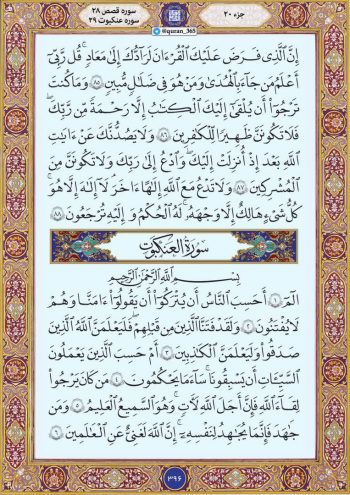 سوره قصص ۲۸
سوره عنکبوت ۲۹
@quran_365
جزء ۲۰
إِنَّ ٱلَّذِى فَرَضَ عَلَيْكَ ٱلْقُرْءَانَ لَرَآدُّكَ إِلَىٰ مَعَادٍ ۚ قُل رَّبِّىٓ
أَعْلَمُ مَن جَآءَ بِٱلْهُدَىٰ وَمَنْ هُوَ فِى ضَلَـٰلٍ مُّبِينٍ ﴿۸۵﴾ وَمَا كُنتَ
تَرْجُوٓا۟ أَن يُلْقَىٰٓ إِلَيْكَ ٱلْكِتَـٰبُ إِلَّا رَحْمَةً مِّن رَّبِّكَ ۖ
فَلَا تَكُونَنَّ ظَهِيرًا لِّلْكَـٰفِرِينَ ﴿۸۶﴾ وَلَا يَصُدُّنَّكَ عَنْ ءَايَـٰتِ
ٱللَّهِ بَعْدَ إِذْ أُنزِلَتْ إِلَيْكَ ۖ وَٱدْعُ إِلَىٰ رَبِّكَ ۖ وَلَا تَكُونَنَّ مِنَ
ٱلْمُشْرِكِينَ ﴿۸۷﴾ وَلَا تَدْعُ مَعَ ٱللَّهِ إِلَـٰهًا ءَاخَرَ ۘ لَآ إِلَـٰهَ إِلَّا هُوَ ۚ
كُلُّ شَىْءٍ هَالِكٌ إِلَّا وَجْهَهُۥ ۚ لَهُ ٱلْحُكْمُ وَإِلَيْهِ تُرْجَعُونَ ﴿۸۸﴾
سورة العنكبوت
بِسْمِ ٱللَّهِ ٱلرَّحْمَـٰنِ ٱلرَّحِيمِ
الٓمٓ ﴿۱﴾ أَحَسِبَ ٱلنَّاسُ أَن يُتْرَكُوٓا۟ أَن يَقُولُوٓا۟ ءَامَنَّا وَهُمْ
لَا يُفْتَنُونَ ﴿۲﴾ وَلَقَدْ فَتَنَّا ٱلَّذِينَ مِن قَبْلِهِمْ ۖ فَلَيَعْلَمَنَّ ٱللَّهُ ٱلَّذِينَ
صَدَقُوا۟ وَلَيَعْلَمَنَّ ٱلْكَـٰذِبِينَ ﴿۳﴾ أَمْ حَسِبَ ٱلَّذِينَ يَعْمَلُونَ
ٱلسَّيِّـَٔاتِ أَن يَسْبِقُونَا ۚ سَآءَ مَا يَحْكُمُونَ ﴿۴﴾ مَن كَانَ يَرْجُوا۟
لِقَآءَ ٱللَّهِ فَإِنَّ أَجَلَ ٱللَّهِ لَـَٔاتٍ ۚ وَهُوَ ٱلسَّمِيعُ ٱلْعَلِيمُ ﴿۵﴾ وَمَن
جَـٰهَدَ فَإِنَّمَا يُجَـٰهِدُ لِنَفْسِهِۦٓ ۚ إِنَّ ٱللَّهَ لَغَنِىٌّ عَنِ ٱلْعَـٰلَمِينَ ﴿۶﴾
۳۹۶